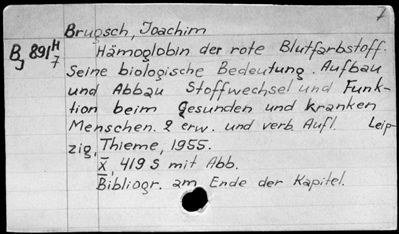 Brugsch, Joachim
B, 891 H/7
J
Hämoglobin der rote Blutfarbstoff.
Seine biologische Bedeutung. Aufbau
und Abbau Stoffwechsel und Funk-
tion beim Gesunden und kranken
Menschen. 2 erw. und verb. Aufl. Leip-
zig, Thieme, 1955.
X, 419 S mit Abb.
Bibliogr. am Ende der Kapitel.